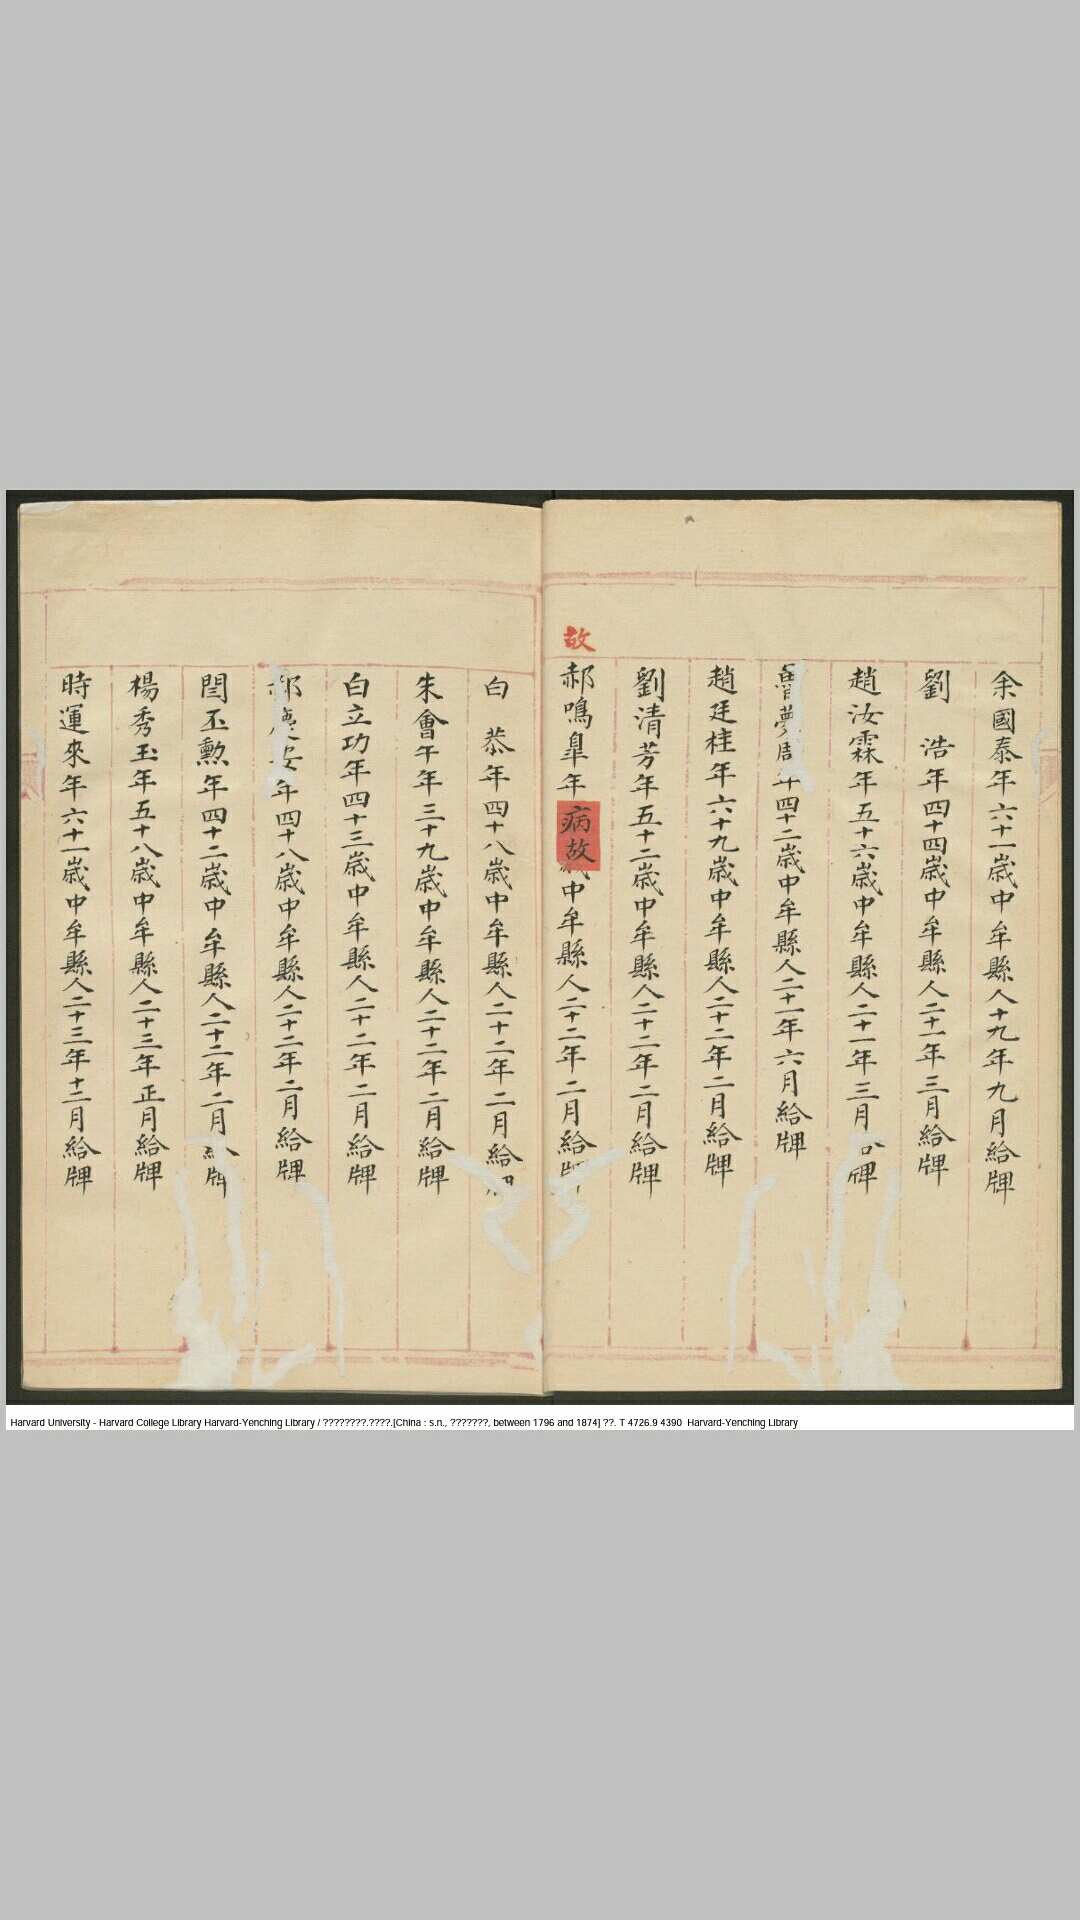 余國泰年六十一歲中牟縣人十九年九月給牌
劉浩年四十四歲中牟縣人二十一年三月給牌
趙汝霖年五十六歲中牟縣人二十一年三月給牌
魯夢周年四十二歲中牟縣人二十一年六月給牌
趙廷桂年六十九歲中牟縣人二十二年二月給牌
劉清芳年五十二歲中牟縣人二十二年二月給牌
故
郝鳴臯年病故歲中牟縣人二十二年二月給牌
白恭年四十八歲中牟縣人二十二年二月給牌
朱會午年三十九歲中牟縣人二十二年二月給牌
白立功年四十三歲中牟縣人二十二年二月給牌
郝慶安年四十八歲中牟縣人二十二年二月給牌
閆丕勲年四十二歲中牟縣人二十二年二月給牌
楊秀玉年五十八歲中牟縣人二十三年正月給牌
時運來年六十一歲中牟縣人二十三年十二月給牌
Harvard University - Harvard College Library Harvard-Yenching Library / ????????.????.[China : s.n., ???????, between 1796 and 1874] ??. T 4726.9 4390 Harvard-Yenching Library